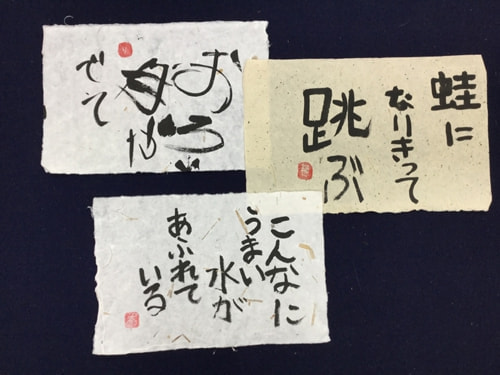 蛙に
なりきって
跳ぶ
でて
こんなに
うまい
水が
あふれて
いる